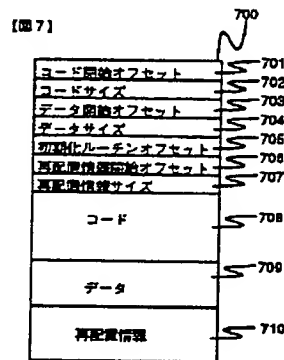 【図7】
700
コード開始オフセット 701
コードサイズ 702
データ開始オフセット 703
データサイズ 704
初期化ルーチンオフセット 705
再配置情報開始オフセット 706
再配置情報サイズ 707
コード 708
データ 709
再配置情報 710